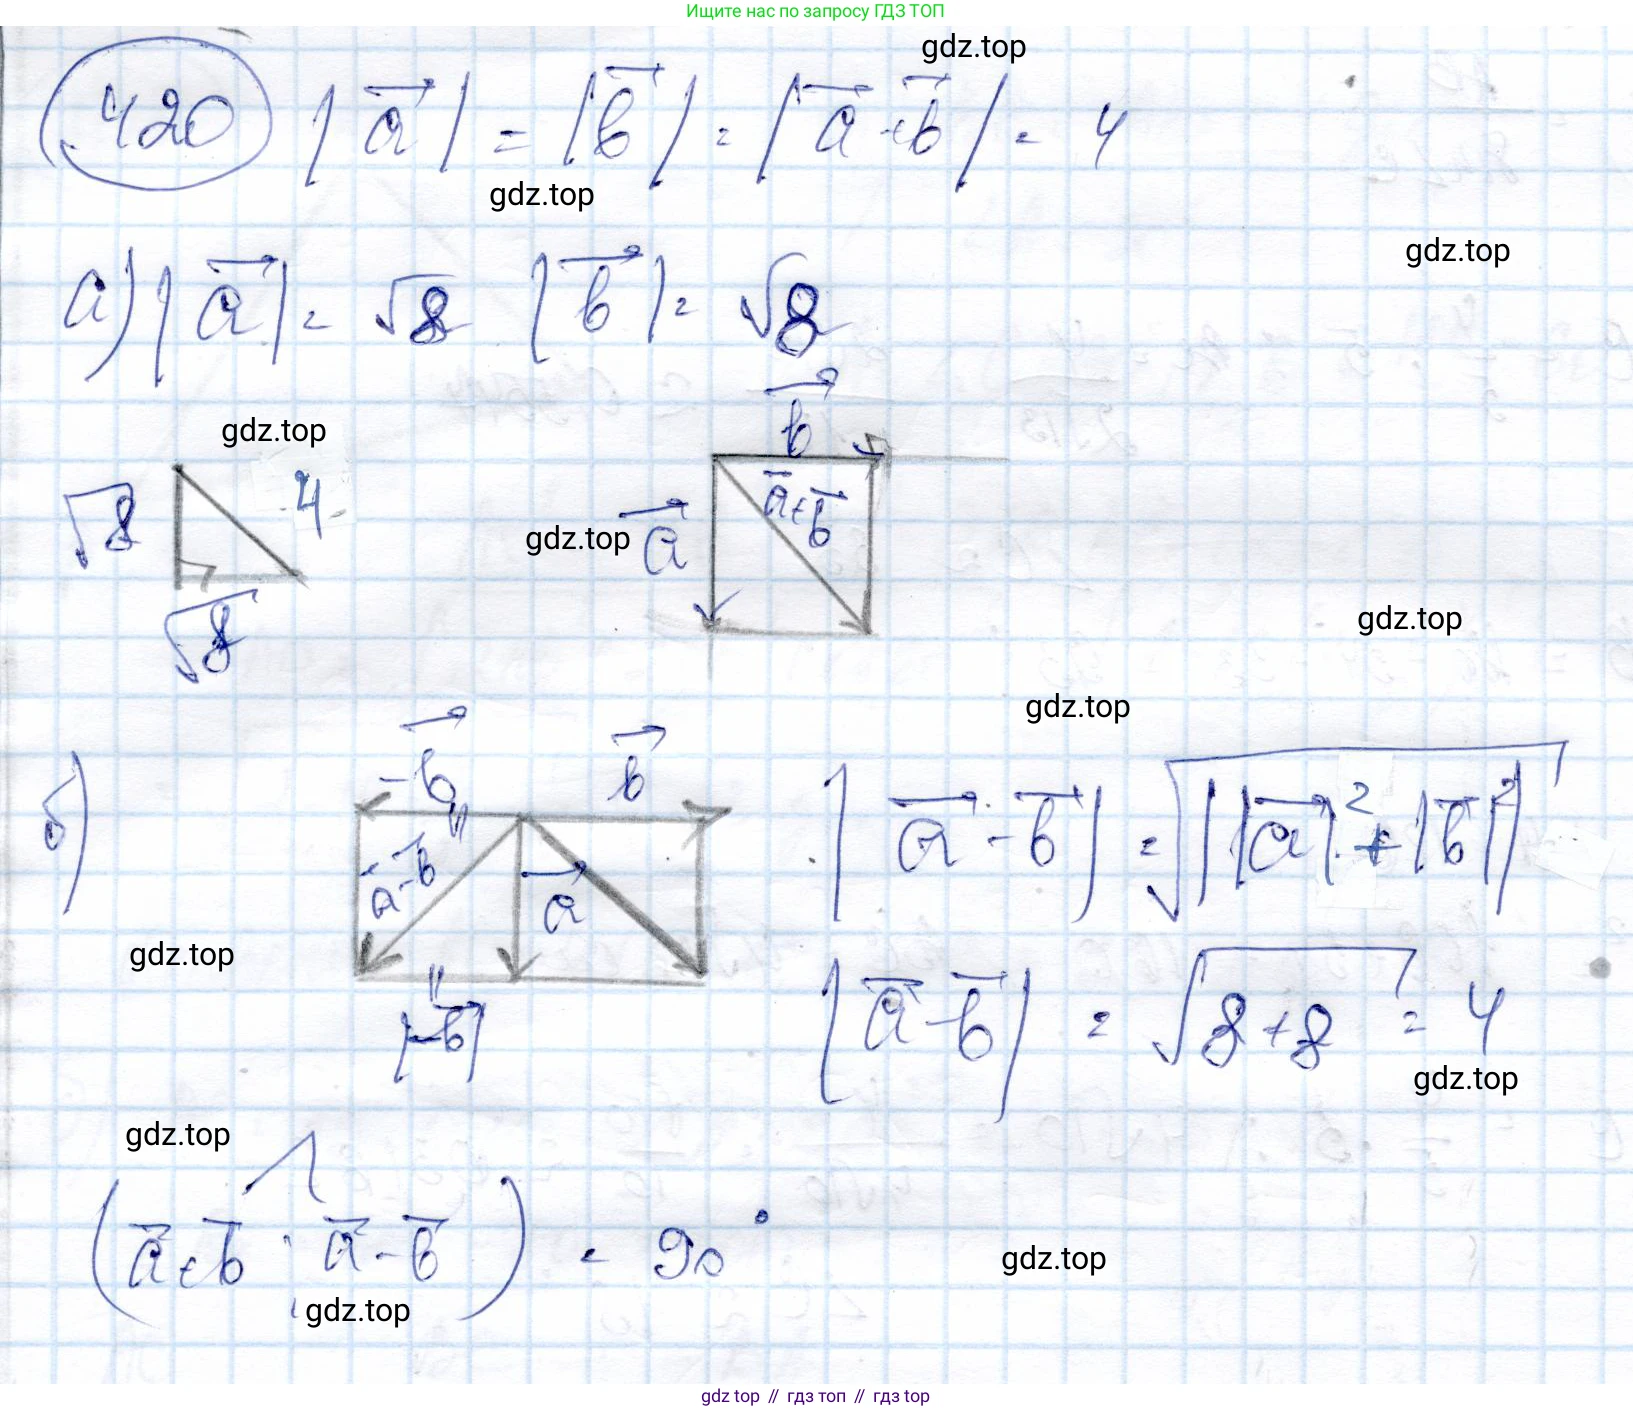 Ищите нас по запросу ГДЗ ТОП
gdz.top
420 |a| = |b| = |a+b| = 4
gdz.top
gdz.top
а) |a| = √8 |b| = √8
gdz.top
b
√8 4
a
a+b
gdz.top
√8
gdz.top
gdz.top
б)
-b
b
|a-b| = √||a|²+|b|²|
a-b
a
gdz.top
|-b|
|a-b| = √8+8 = 4
gdz.top
gdz.top
(a+b; a-b) = 90°
gdz.top
gdz.top
gdz top // гдз топ // гдз top